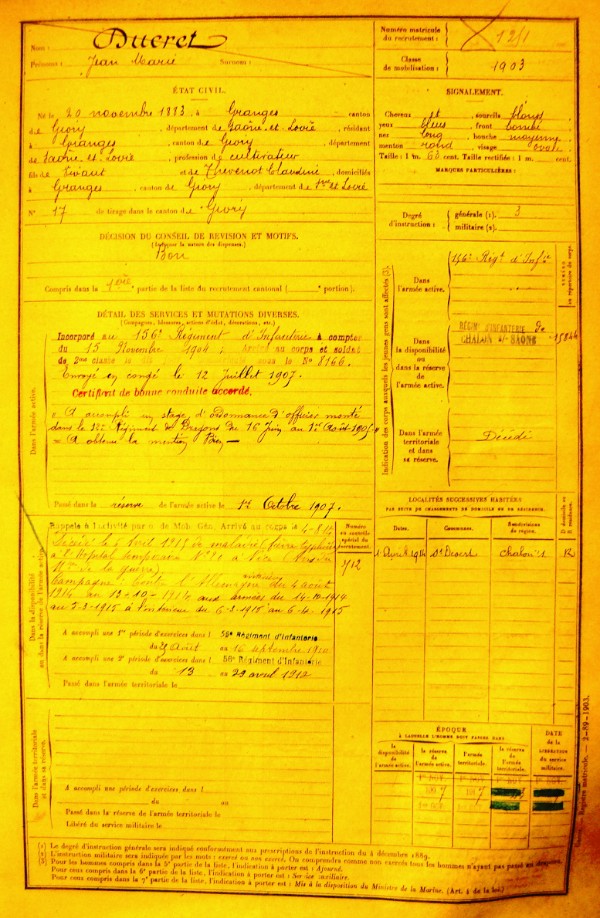 Nom : Ducret
Prénoms : Jean Marie Surnoms :
Numéro matricule du recrutement : 1211
Classe de mobilisation : 1903
ÉTAT CIVIL.
Né le 20 novembre 1883, à Granges, canton
de Givry, département de Saône-et-Loire, résidant
à Granges, canton de Givry, département
de Saône-et-Loire, profession de cultivateur
fils de Vivant et de Thevenot Claudine, domiciliés
à Granges, canton de Givry, département de
N° 17 de tirage dans le canton de Givry
SIGNALEMENT.
Cheveux et sourcils blonds
yeux bleus, front
nez long, bouche moyenne
menton rond, visage ovale
Taille : 1 m. cent. Taille rectifiée : 1 m. cent.
MARQUES PARTICULIÈRES :
Degré d'instruction : générale (1). 3
militaire (2).
DÉCISION DU CONSEIL DE REVISION ET MOTIFS.
Bon
Compris dans la 1ère partie de la liste du recrutement cantonal ( portion).
DÉTAIL DES SERVICES ET MUTATIONS DIVERSES.
(Campagnes, blessures, actions d'éclat, décorations, etc.)
Incorporé au 156e Régiment d'Infanterie à compter
du 15 Novembre 1904 ; Arrivé au corps et soldat
de 2me classe le dit sous le No 8166.
Envoyé en congé le 12 Juillet 1907.
Certificat de bonne conduite accordé.
A accompli un stage d'ordonnance d'officier monté
dans le 12e Régiment de Dragons du 16 Juin au 1er Août 1905
A obtenu la mention
Passé dans la réserve de l'armée active le 1er Octobre 1907.
Dans l'armée active.
Indication des corps auxquels les jeunes gens sont affectés (3).
Dans l'armée active. 156e Régt d'Infie
Dans la disponibilité ou dans la réserve de l'armée active.
RÉGIMt D'INFANTERIE
CHALON S/ SAONE
Dans l'armée territoriale et dans sa réserve. Décédé
Rappelé à l'activité par o. de Mob. Gén. Arrivé au corps le 4-8-14
Décédé le 6 Avril 1915 de maladie (fièvre typhoïde)
à l'Hôpital temporaire à
Mtre de la guerre).
Campagne : Contre l'Allemagne intérieur du 4 août
1914 au 13-10-1914 aux armées du 14-10-1914
au 5-3-1915 à l'intérieur du 6-3-1915 au 6-4-1915
Numéro au contrôle spécial du recrutement.
A accompli une 1re période d'exercices dans l 56e Régiment d'Infanterie
du Août au 16 septembre 1910
A accompli une 2e période d'exercices dans l 56e Régiment d'Infanterie
du 13 au 29 avril 1912
Passé dans l'armée territoriale le
Dans la disponibilité ou dans la réserve de l'armée active.
LOCALITÉS SUCCESSIVES HABITÉES
PAR SUITE DE CHANGEMENTS DE DOMICILE OU DE RÉSIDENCE.
Dates. Communes. Subdivisions de région. D domicile ou R résidence.
Avril 1914 St Désert Chalon R
ÉPOQUE
À LAQUELLE L'HOMME DOIT PASSER DANS
la disponibilité de l'armée active. la réserve de l'armée active. l'armée territoriale. la réserve de l'armée territoriale.
DATE de la LIBÉRATION du service militaire.
Dans l'armée territoriale et dans sa réserve.
A accompli une période d'exercices dans l
du au
Passé dans la réserve de l'armée territoriale le
Libéré du service militaire le
Le degré d'instruction générale sera indiqué conformément aux prescriptions de l'instruction du 4 décembre 1889.
L'instruction militaire sera indiquée par les mots : exercé ou non exercé.
Pour les hommes compris dans la 5e partie de la liste, l'indication à porter est : Ajourné.
Pour ceux compris dans la 6e partie de la liste, l'indication à porter est : Service auxiliaire.
Pour ceux compris dans la 7e partie de la liste, l'indication à porter est : Mis à la disposition du Ministre de la Marine. (Art. 4 de la loi.)